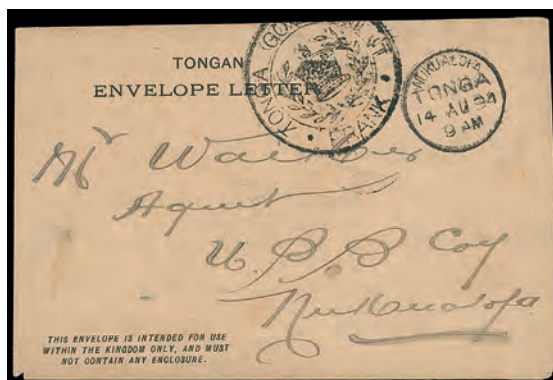 TONGAN
ENVELOPE LETTER
TONGA GOVERNMENT FRANK
NUKUALOFA
TONGA
14 AU 94
9 AM
Mr
Agent
U.S.S Coy
Nukualofa
THIS ENVELOPE IS INTENDED FOR USE
WITHIN THE KINGDOM ONLY, AND MUST
NOT CONTAIN ANY ENCLOSURE.